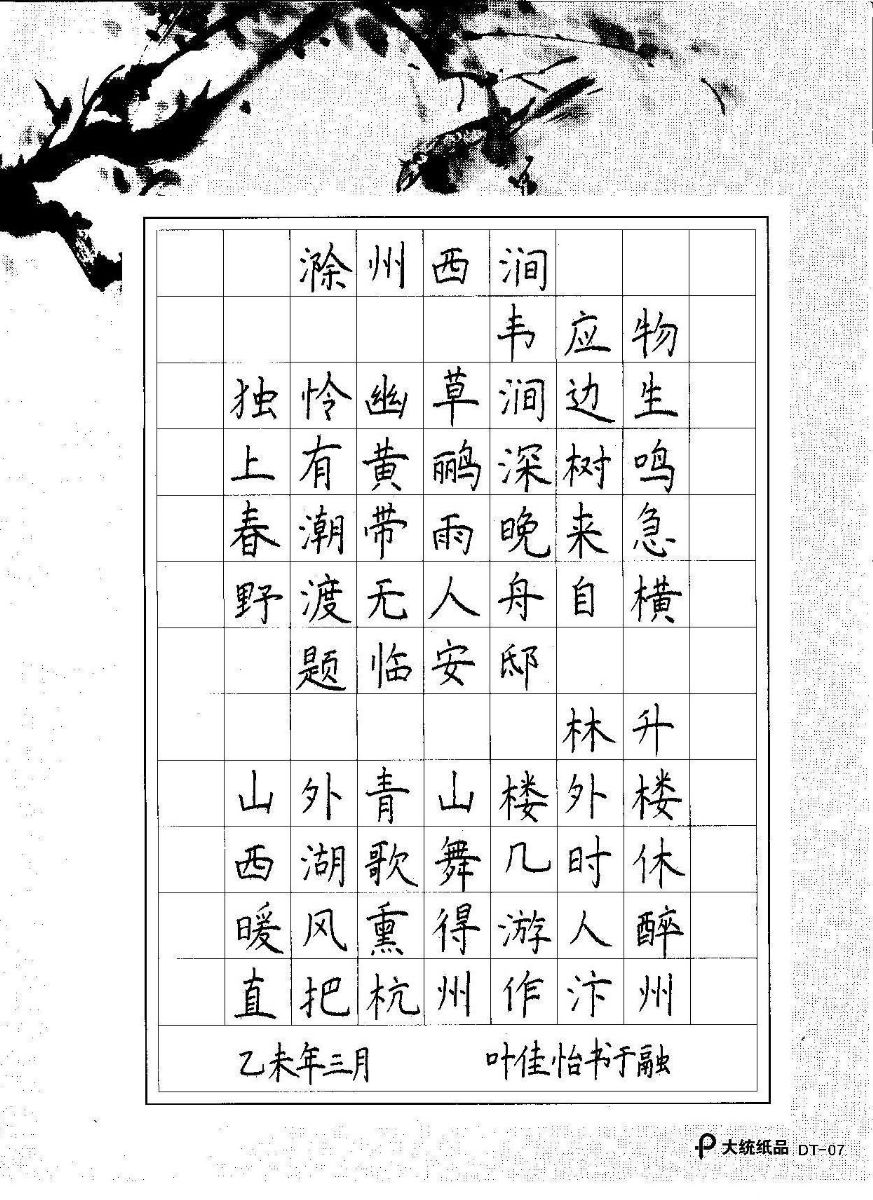 滁州西涧
韦应物
独怜幽草涧边生
上有黄鹂深树鸣
春潮带雨晚来急
野渡无人舟自横
题临安邸
林升
山外青山楼外楼
西湖歌舞几时休
暖风熏得游人醉
直把杭州作汴州
乙未年三月 叶佳怡书于融
大统纸品 DT-07